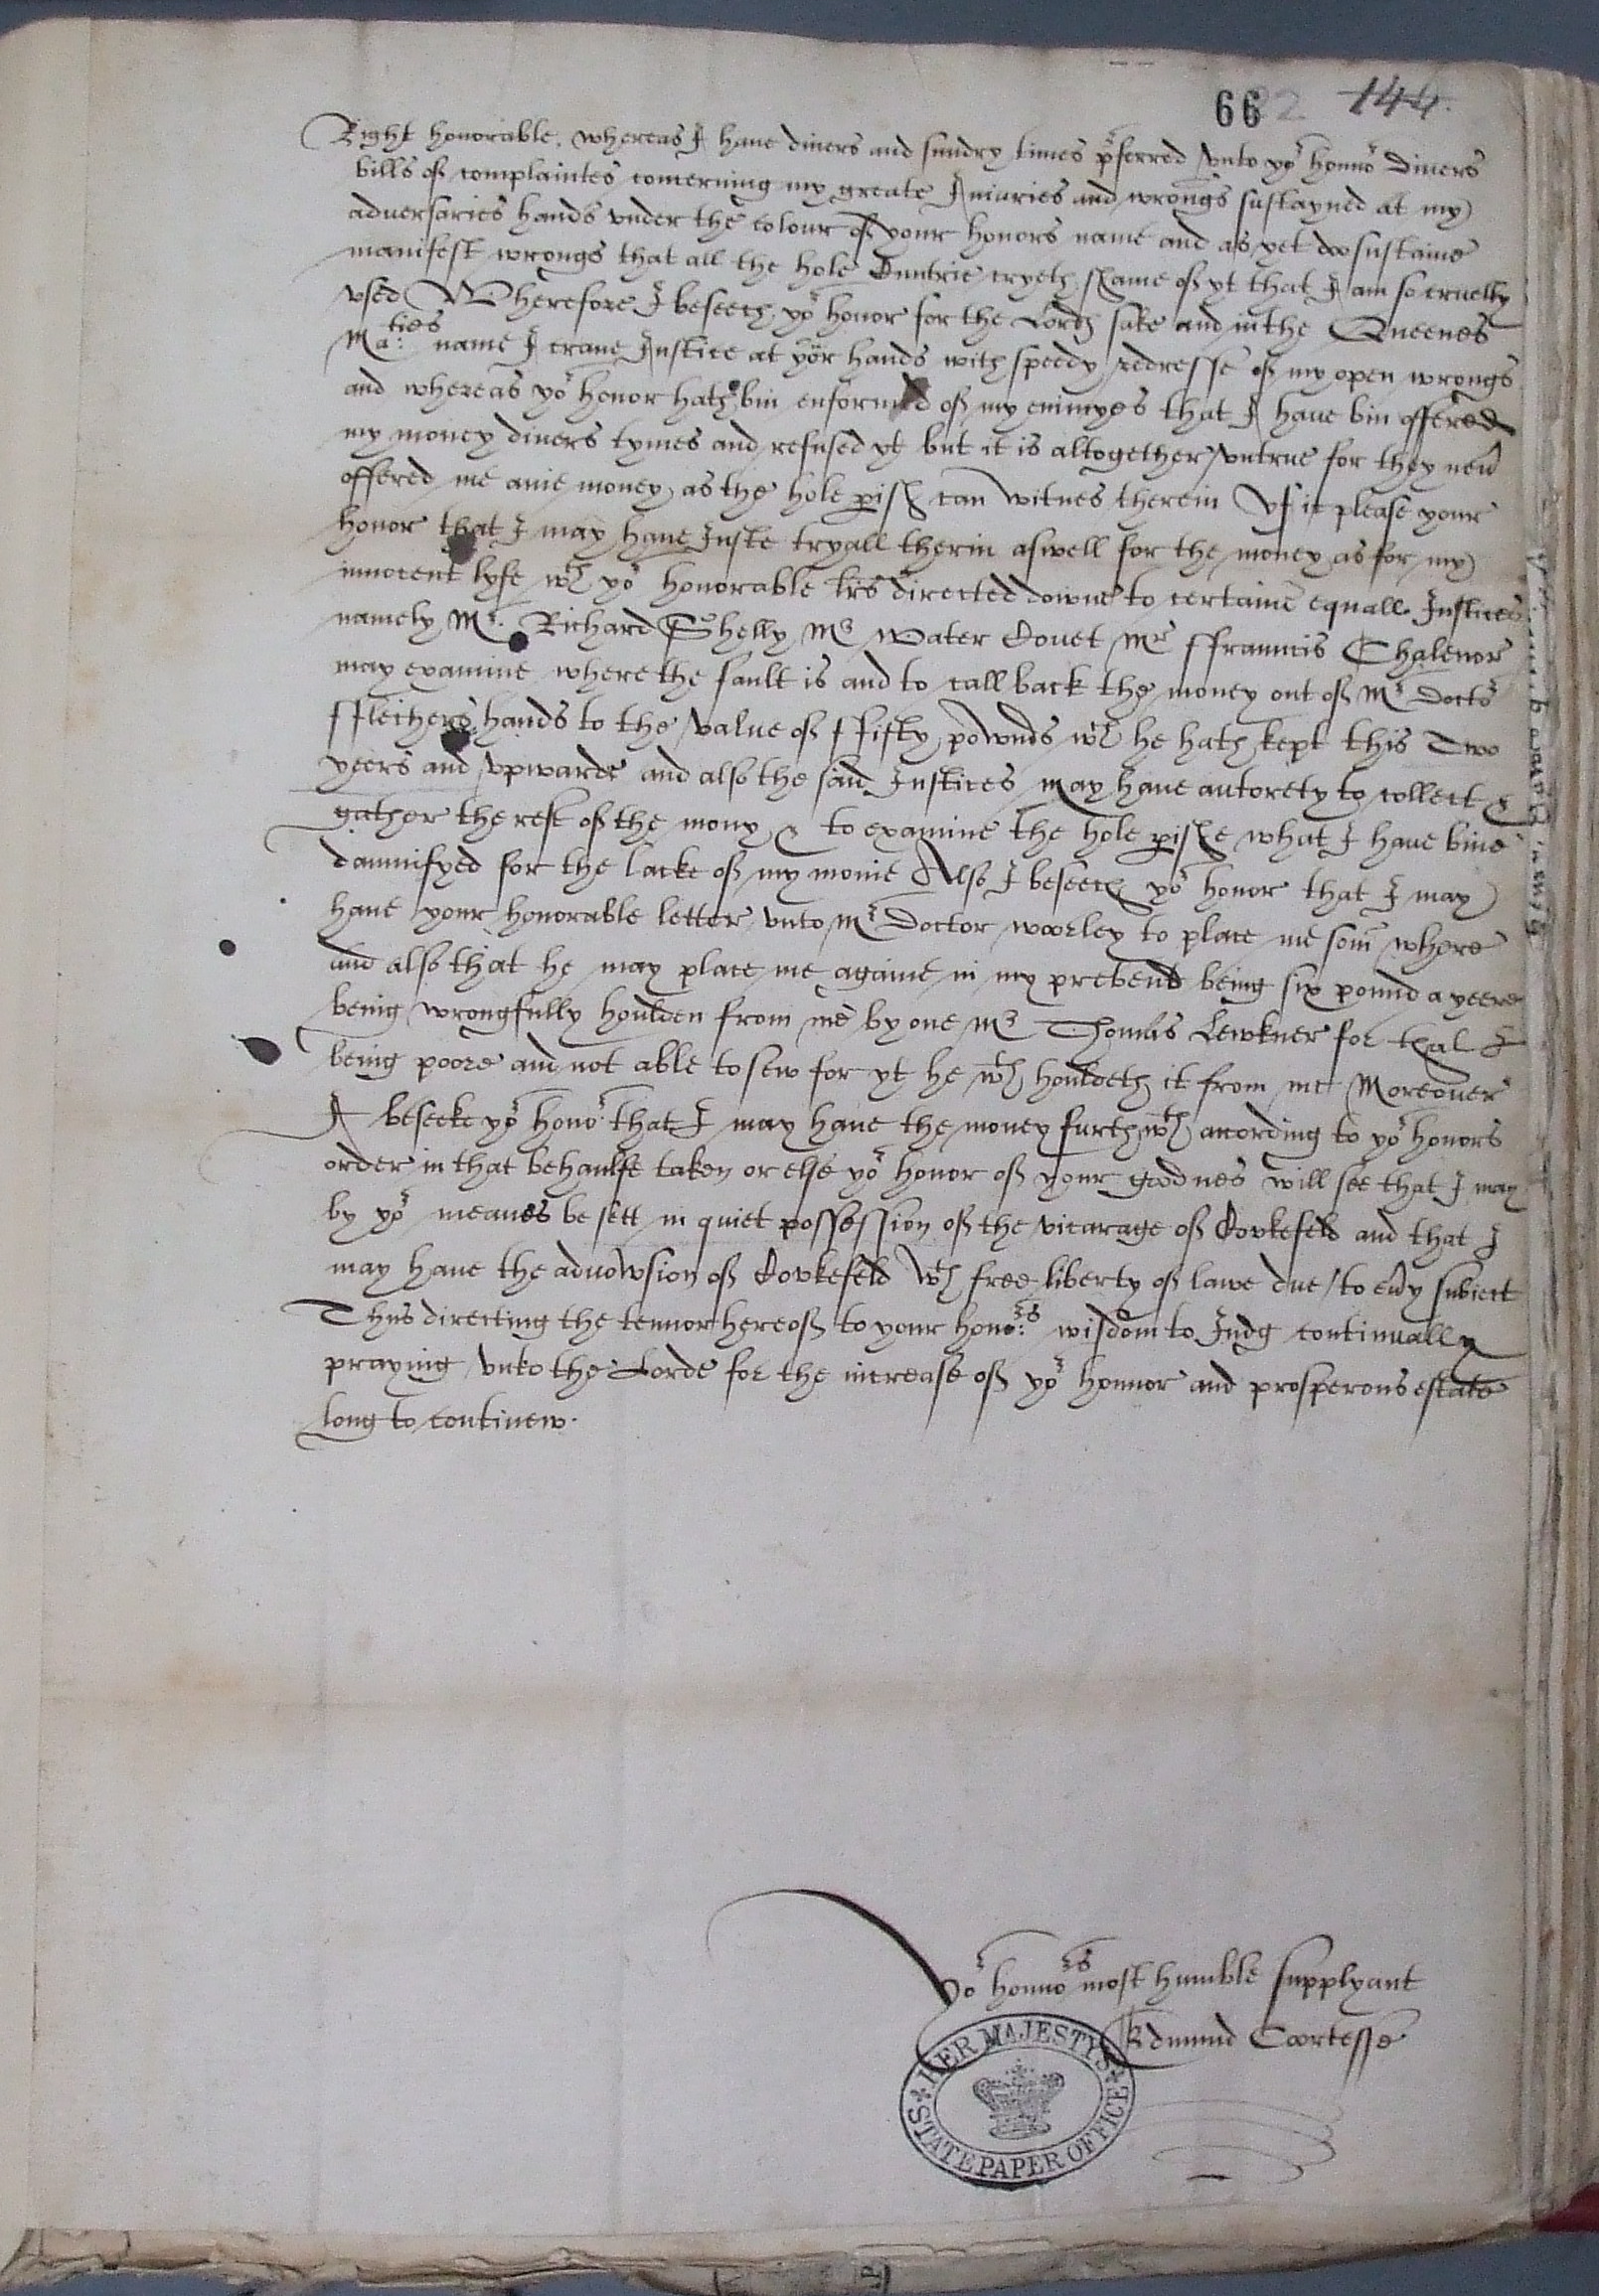 66 22 144.
Right honorable, whereas I haue diuers and sundry times pferred vnto yor honnor diuers
bills of complaintes concerning my greate Iniuries and wrongs sustayned at my
aduersaries hands vnder the colour of your honors name and as yet doo sustaine
manifest wrongs that all the hole Cuntrie cryeth shame of yt that I am so cruelly
vsed Wherefore I beseech yor honor for the Lords sake and in the Queenes
Maties: name I craue Iustice at yor hands with speedy redresse of my open wrongs
and whereas yor honor hath bin enformed of my enimyes that I haue bin offered
my money diuers tymes and refused yt but it is altogether vntrue for they neur
offered me anie money as the hole pish can witnes therein Yf it please your
honor that I may haue Iuste tryall therin aswell for the money as for my
innocent lyfe wth yor honorable lrs directed downe to certaine equall Iustices
namely Mr. Richard Shelly Mr Water Couet Mr ffrauncis Chalenor
may examine where the fault is and to call back the money out of Mr Doctor
ffletchers hands to the value of ffifty pownds wch he hath kept this Two
yeers and vpwards and also the said Iustices may haue autorety to collect &
gather the rest of the mony & to examine the hole pishe what I haue bine
damnifyed for the lacke of my monie Also I beseech yor honor that I may
haue your honorable letter vnto Mr Doctor woorley to place me som where
and also that he may place me againe in my prebend being six pound a yeere
being wrongfully houlden from me by one Mr Thomas Lewkner for that I
being poore and not able to sew for yt he wth houldeth it from me Moreouer
I beseeke yor honor that I may haue the money furthwth according to yor honors
order in that behaulfe taken or else yor honor of your goodnes will see that I may
by yor meanes be sett in quiet possession of the vicarage of Cockefeld and that I
may haue the aduowsion of Cockefeld wth free liberty of lawe due to eury subiect
Thus directing the tennor hereof to your honors: wisdom to Iudg continually
praying vnto the Lorde for the increase of yor honnor and prosperous estate
long to continew.
Yor honnors most humble supplyant
Edmund Coortesse
HER MAJESTY'S STATE PAPER OFFICE